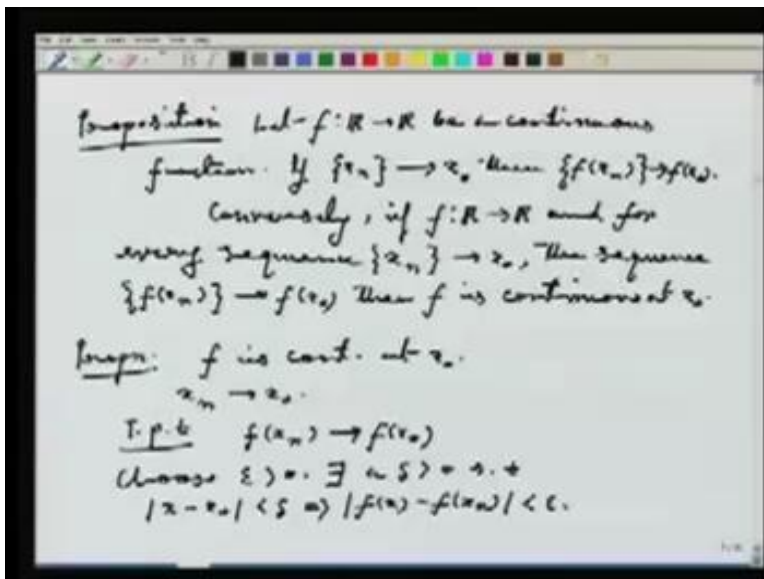 Proposition Let f : R → R be a continuous
function. If {x_n} → x_0 then {f(x_n)} → f(x_0).
Conversely, if f : R → R and for
every sequence {x_n} → x_0, the sequence
{f(x_n)} → f(x_0) then f is continuous at x_0.
f is cont. at x_0.
x_n → x_0.
T.p.t f(x_n) → f(x_0)
Choose ε > 0. ∃ a δ > 0 s.t
|x - x_0| < δ ⇒ |f(x) - f(x_0)| < ε.